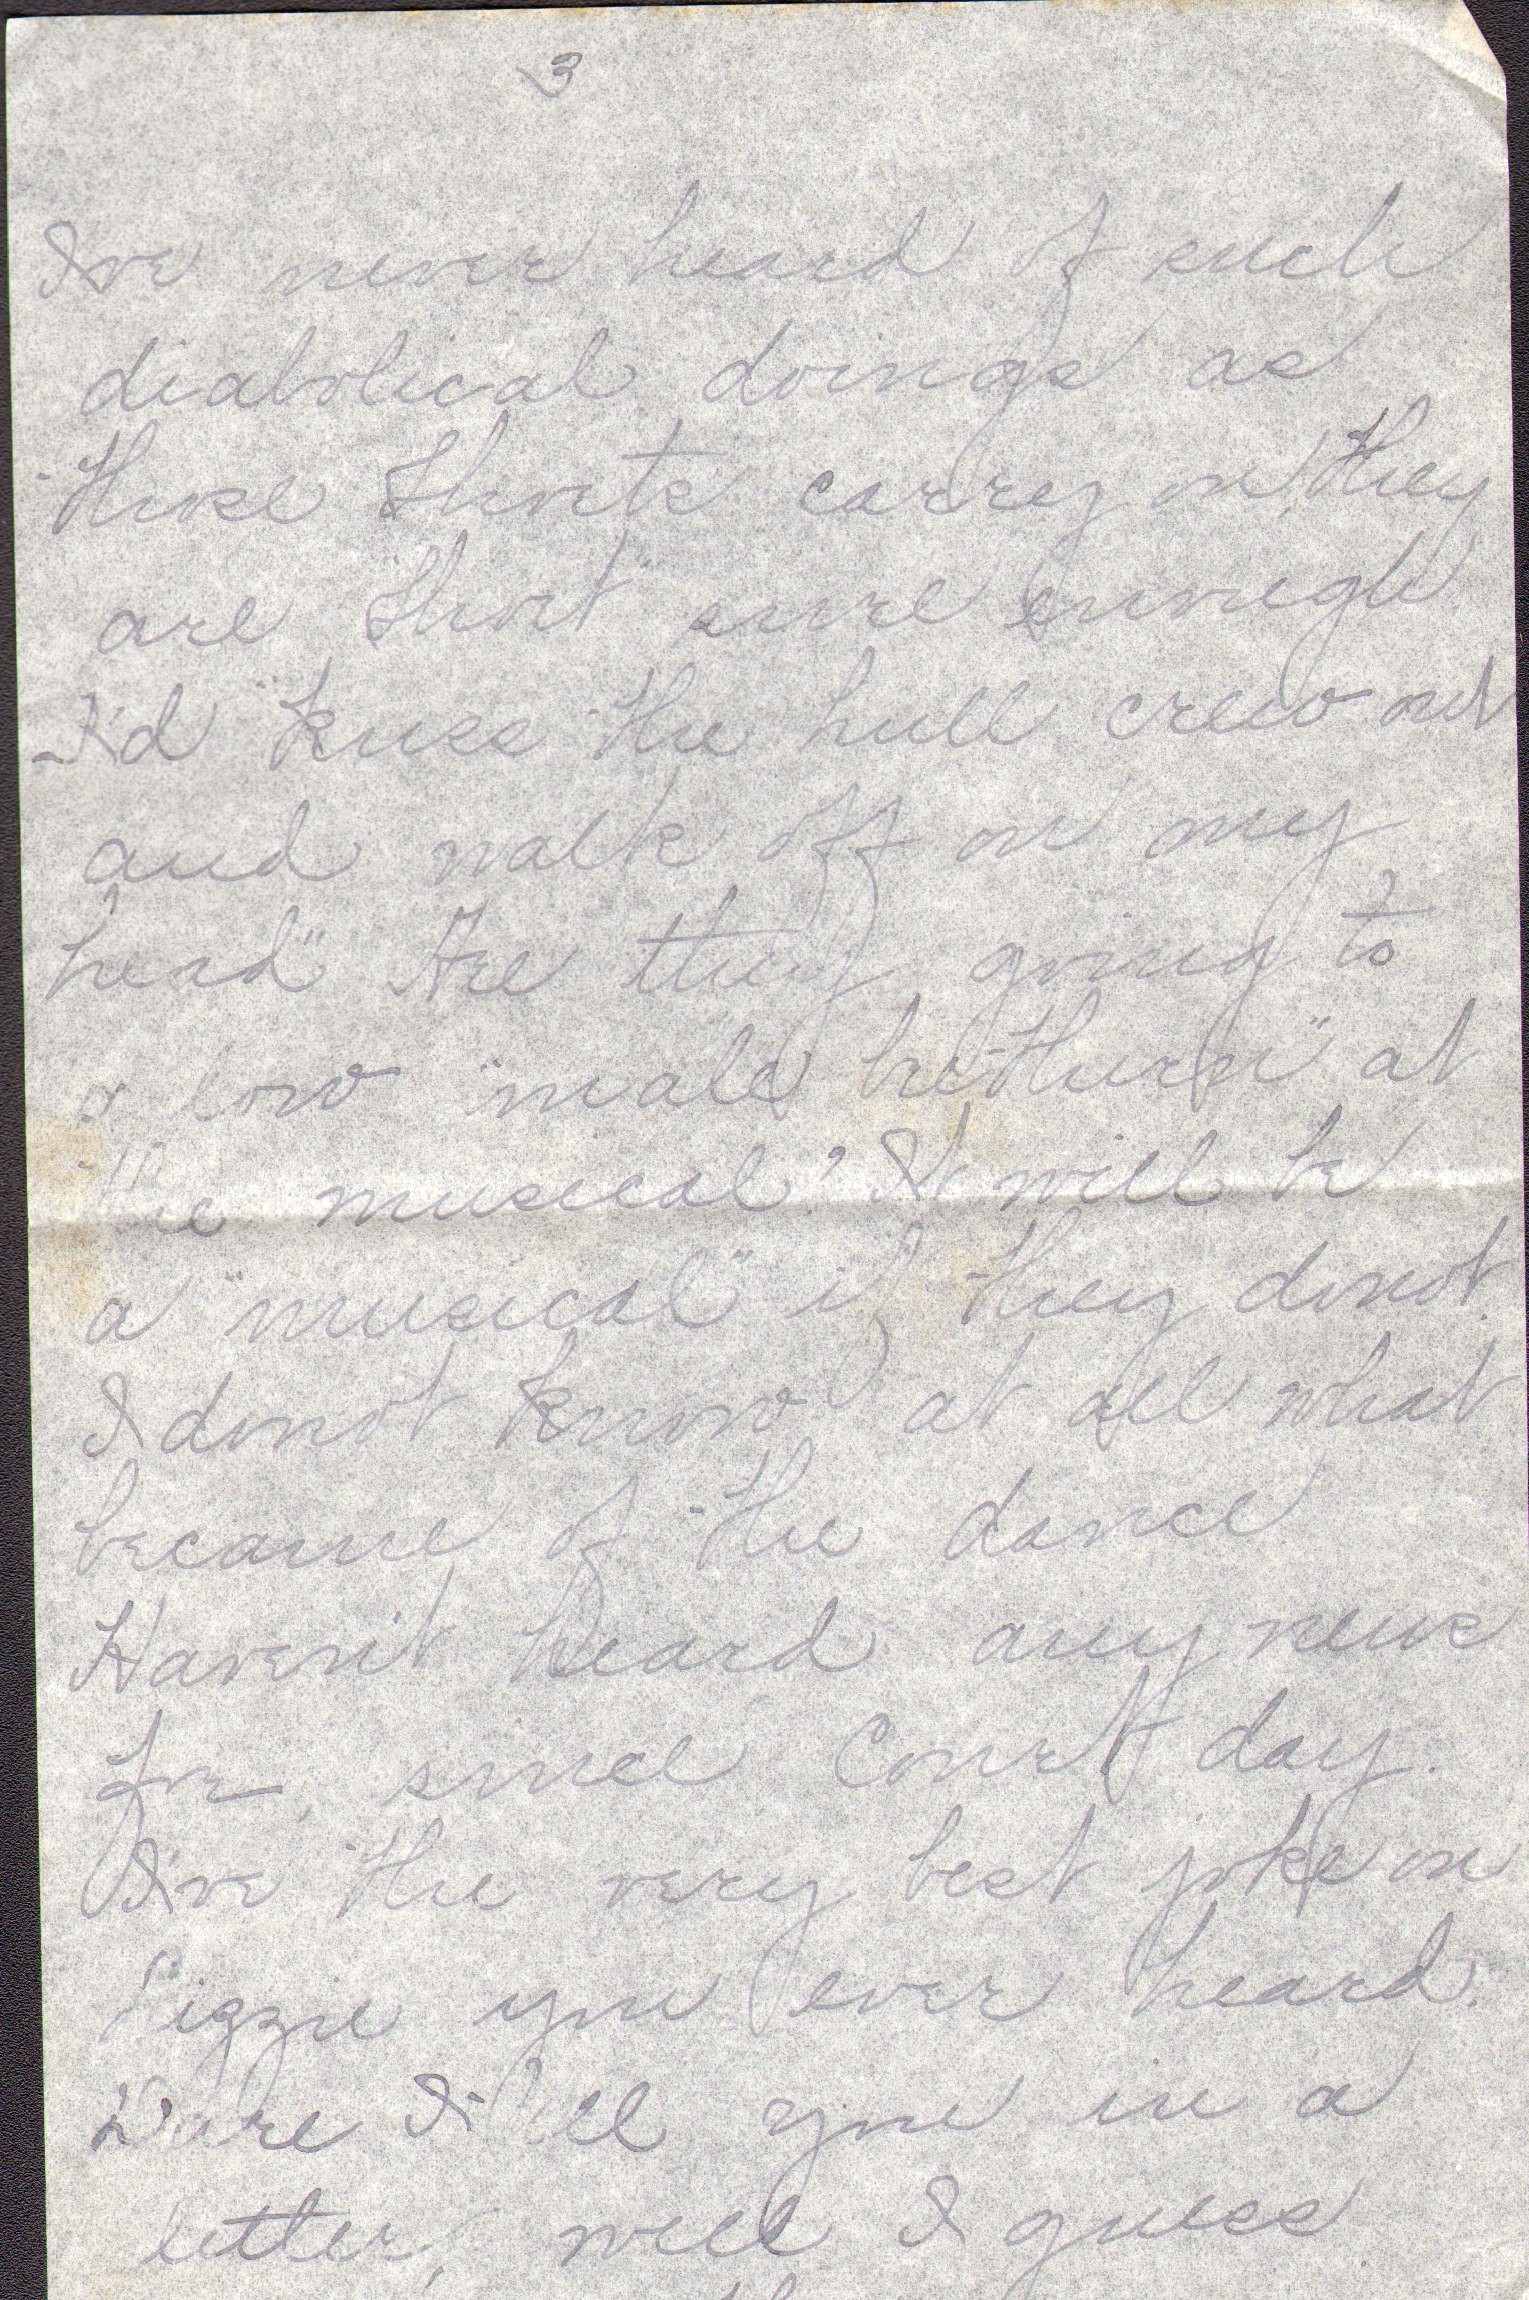 3
I've never heard of such
diabolical doings as
those Shorts carry on, they
are "Short" sure enough
I'd "kuss the hull crew out
and walk off on my
head" Are they going to
"male brethern" at
the musical? It will be
a "musical" if they donot.
I donot know at all what
became of the dance
Haven't heard any news
for, since Court day.
I've the very best joke on
Lizzie you ever heard.
Dare I tell you in a
letter, well I guess